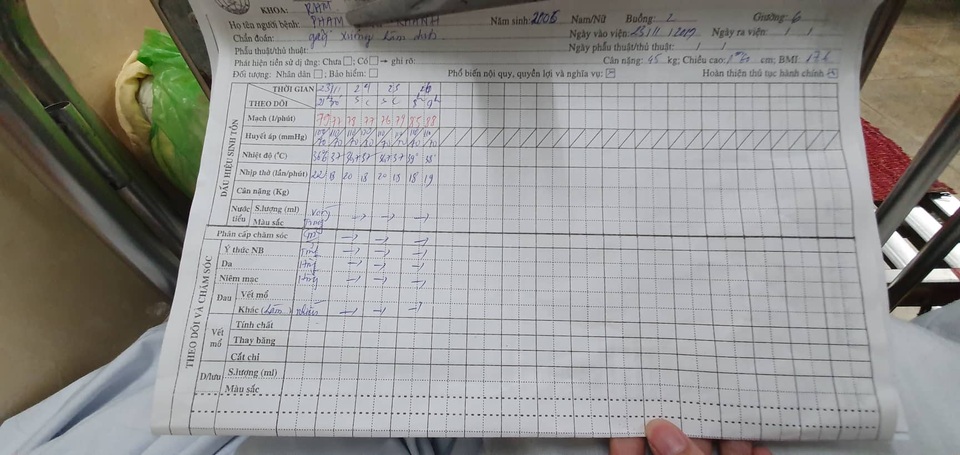 KHOA: RHM
Họ tên người bệnh: PHẠM KHANH Năm sinh: 2005 Nam/Nữ Buồng: 2 Giường: 6
Chẩn đoán: gãy xương hàm dưới Ngày vào viện: 23/11/ Ngày ra viện: / /
Phẫu thuật/thủ thuật: Ngày phẫu thuật/thủ thuật: / /
Phát hiện tiền sử dị ứng: Chưa □; Có □→ ghi rõ: Cân nặng: 45 kg; Chiều cao: cm; BMI:
Đối tượng: Nhân dân □; Bảo hiểm: □; Phổ biến nội quy, quyền lợi và nghĩa vụ: Hoàn thiện thủ tục hành chính
THỜI GIAN 23/11 24 25 26
THEO DÕI S C S C
DẤU HIỆU SINH TỒN
Mạch (l/phút) 79 77 78 77 76 79 85 88
Huyết áp (mmHg)
Nhiệt độ (°C) 37 37 37 38
Nhịp thở (lần/phút) 22 18 20 18 20 19 18 19
Cân nặng (Kg)
Nước tiểu S.lượng (ml)
Màu sắc
THEO DÕI VÀ CHĂM SÓC
Phân cấp chăm sóc
Ý thức NB Tỉnh
Da Hồng
Niêm mạc Hồng
Đau Vết mổ
Khác (hàm) nhiều
Vết mổ Tính chất
Thay băng
Cắt chỉ
D/lưu S.lượng (ml)
Màu sắc